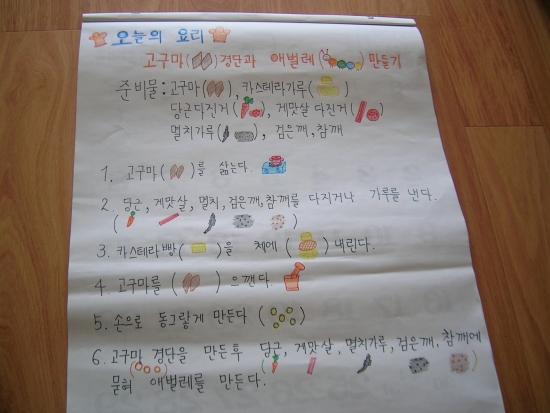 오늘의 요리
고구마( )경단과 애벌레( )만들기
준비물:고구마( ), 카스테라가루( )
당근다진거( ), 게맛살 다진거( )
멸치가루( ), 검은깨, 참깨
1. 고구마( )를 삶는다.
2. 당근, 게맛살, 멸치, 검은깨, 참깨를 다지거나 가루를 낸다.
( )
3. 카스테라빵( )을 체에 ( ) 내린다.
4. 고구마를 ( ) 으깬다.
5. 손으로 동그랗게 만든다 ( )
6. 고구마 경단을 만든후 당근, 게맛살, 멸치가루, 검은깨, 참깨에
( ) ( )
묻혀 애벌레를 만든다.